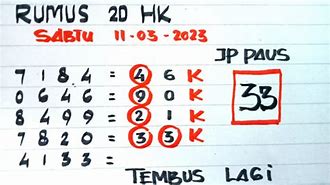 RUMUS 2D HK
SABTU 11-03-2023
JP PAUS
33
7 1 8 4 = 4 6 K
0 6 4 6 = 9 0 K
8 4 9 9 = 2 1 K
7 8 2 0 = 3 3 K
4 1 3 3 =
TEMBUS LAGI